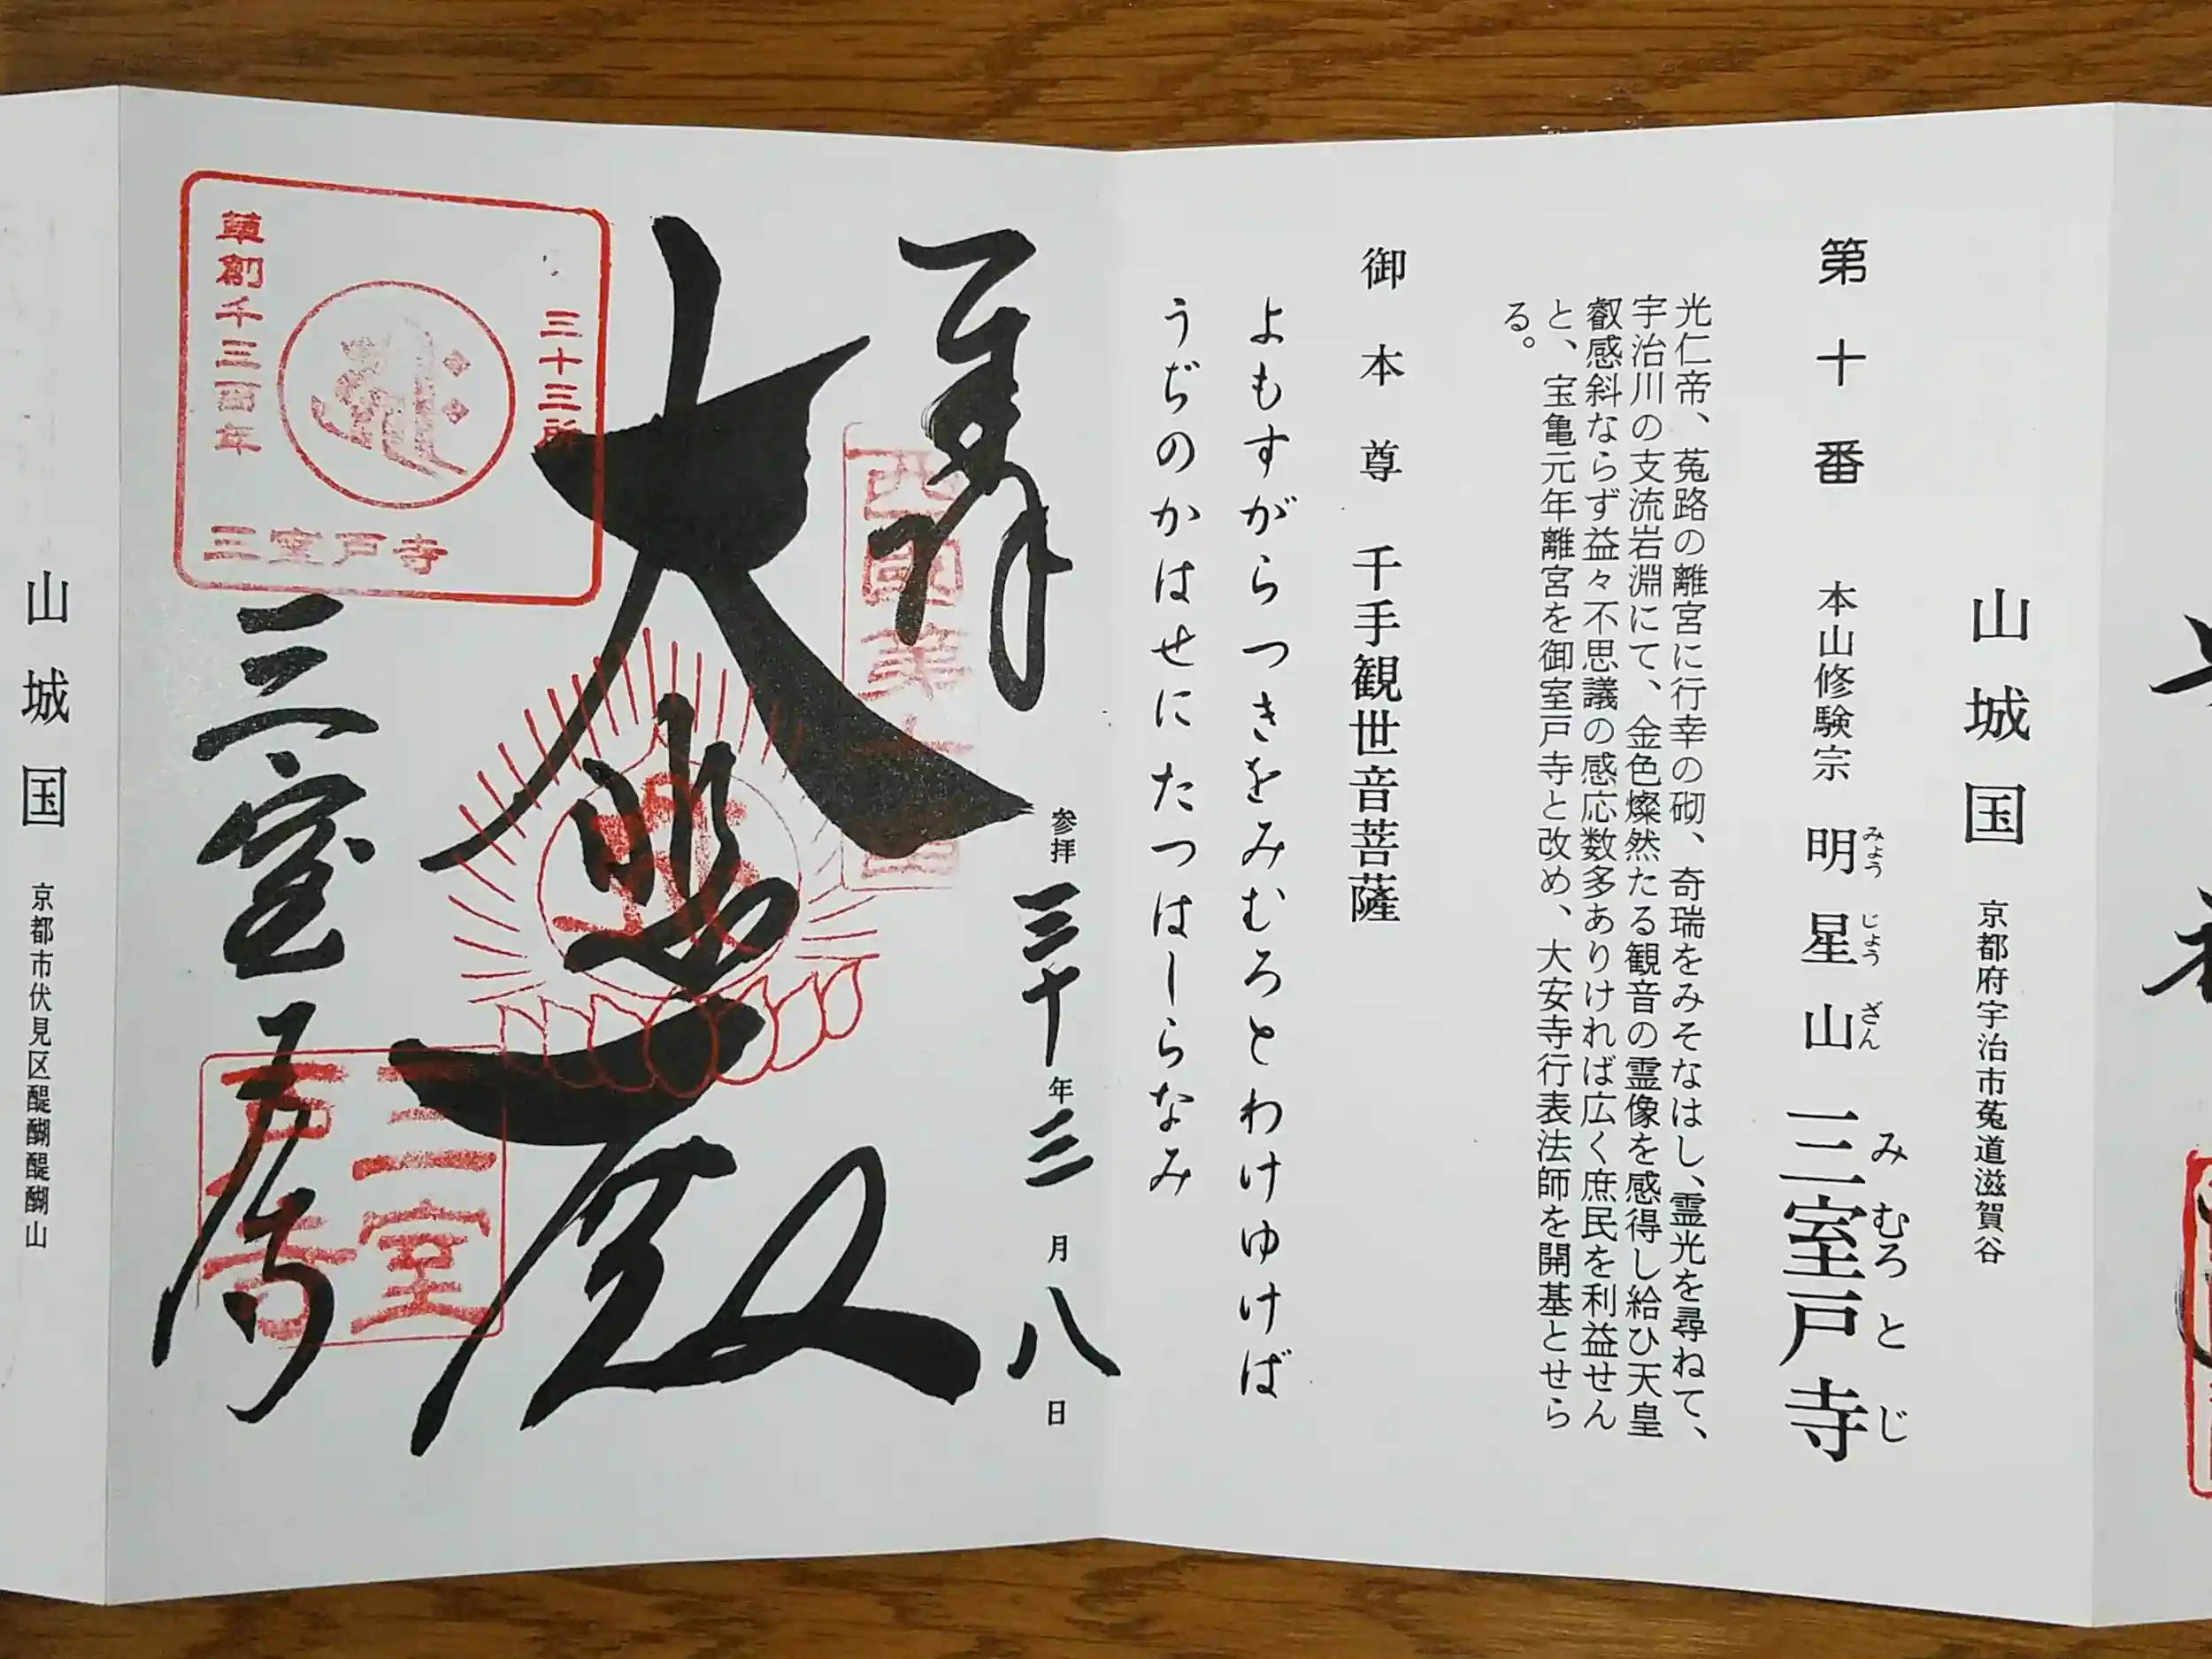 山城国 京都府宇治市菟道滋賀谷
第十番 本山修験宗 明星山 三室戸寺
みょう じょう ざん み むろ と じ
光仁帝、菟路の離宮に行幸の砌、奇瑞をみそなはし、霊光を尋ねて、
宇治川の支流岩淵にて、金色燦然たる観音の霊像を感得し給ひ天皇
叡感斜ならず益々不思議の感応数多ありければ広く庶民を利益せん
と、宝亀元年離宮を御室戸寺と改め、大安寺行表法師を開基とせら
る。
御本尊 千手観世音菩薩
よもすがらつきをみむろとわけゆけば
うぢのかはせにたつはしらなみ
参拝 三十年 三月 八日
奉拝
西國第十番
大悲殿
三室戸寺
三室戸寺
三十三所
草創千三百年
三室戸寺
山城国 京都市伏見区醍醐醍醐山